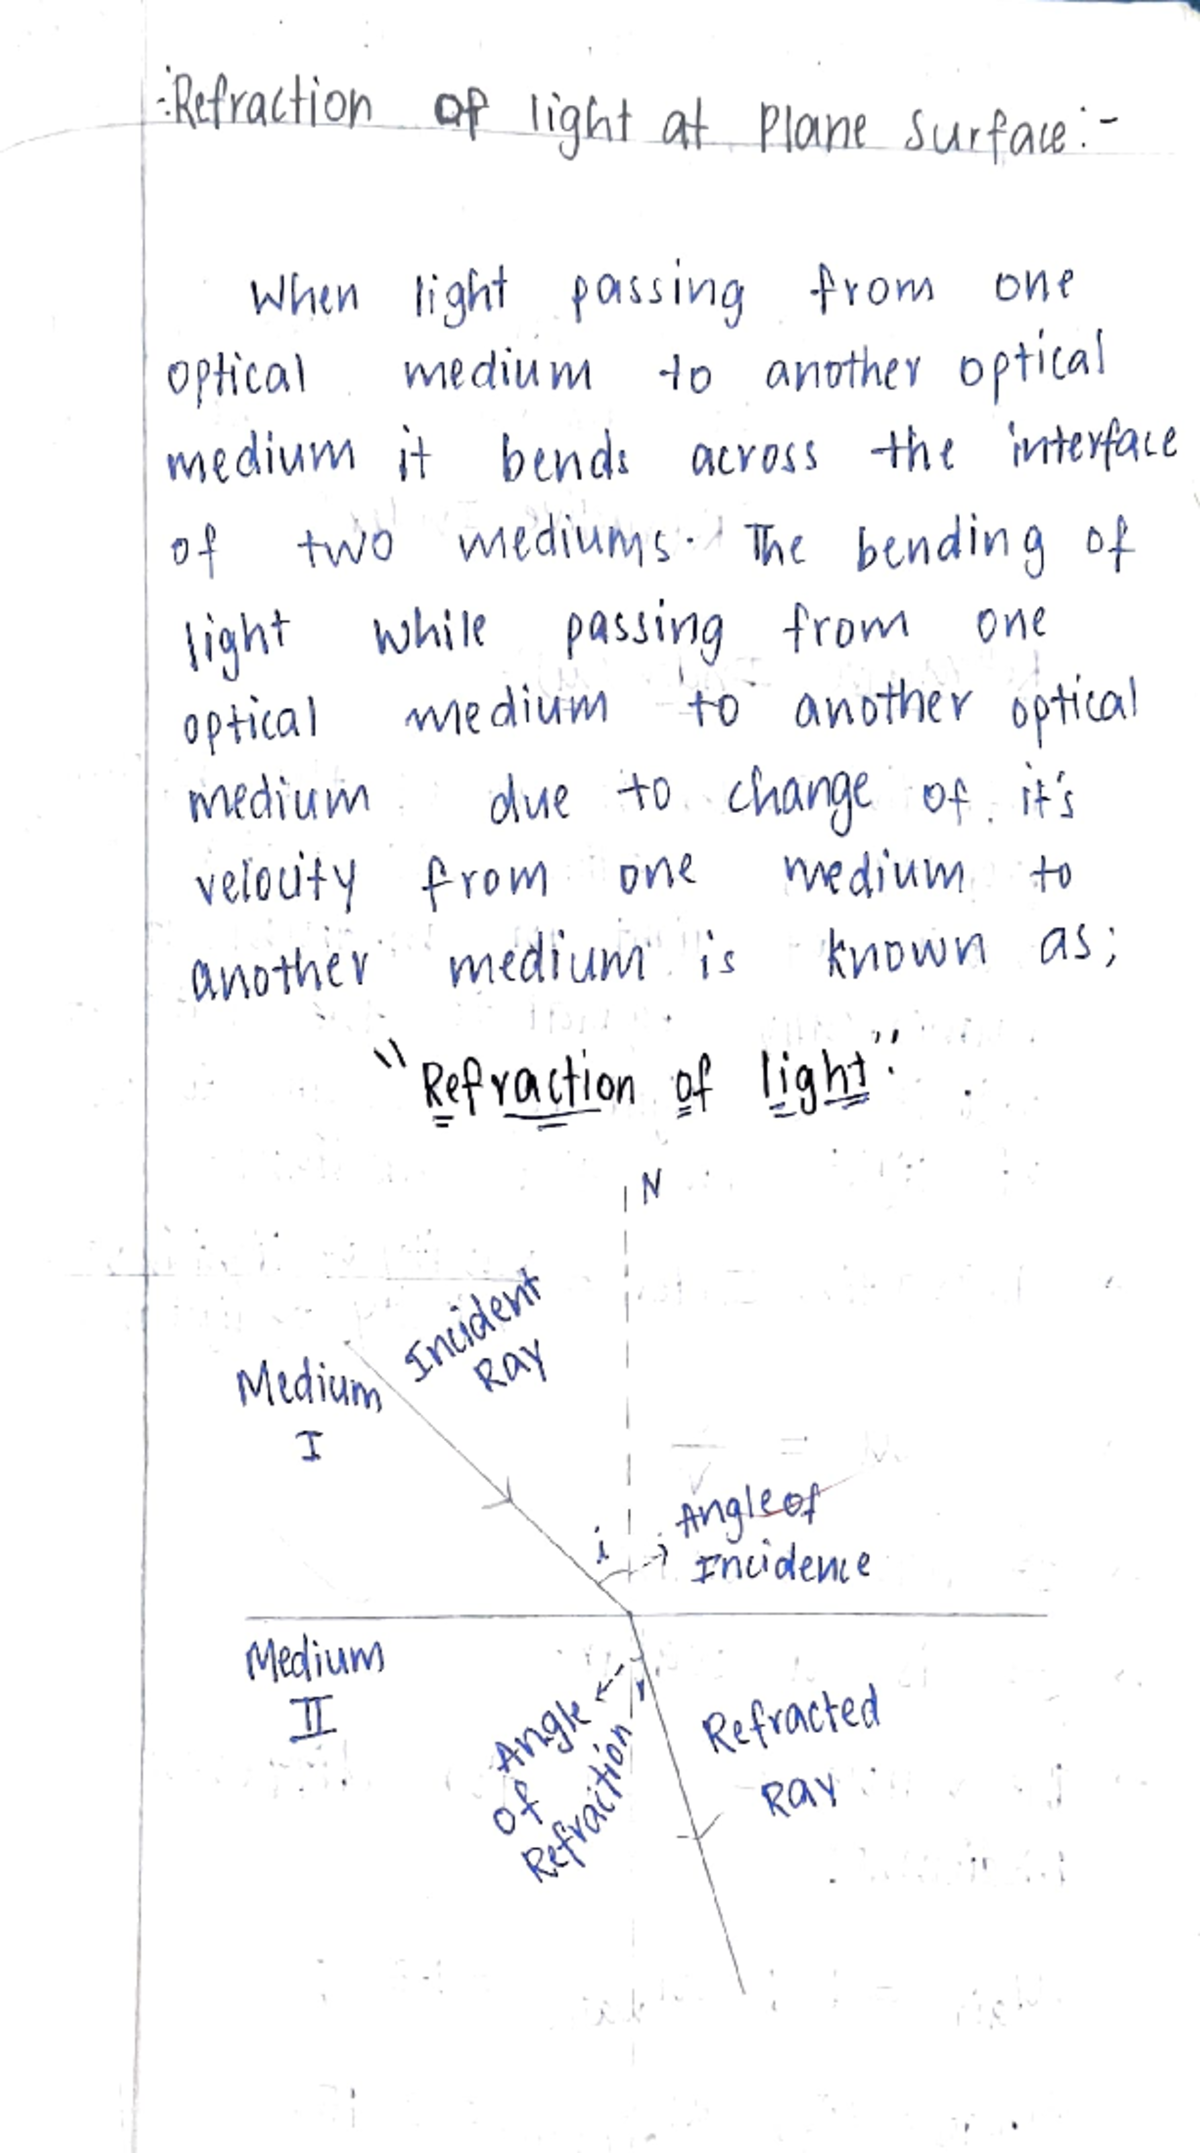 :Refraction of light at Plane surface:-
When light passing from one
optical medium to another optical
medium it bends across the interface
of two mediums. The bending of
light while passing from one
optical medium to another optical
medium due to change of it's
velocity from one medium to
another medium is known as;
"Refraction of light".
N
Incident
Ray
Medium
I
i
Angle of
Incidence
Medium
II
r
Angle
of
Refraction
Refracted
Ray